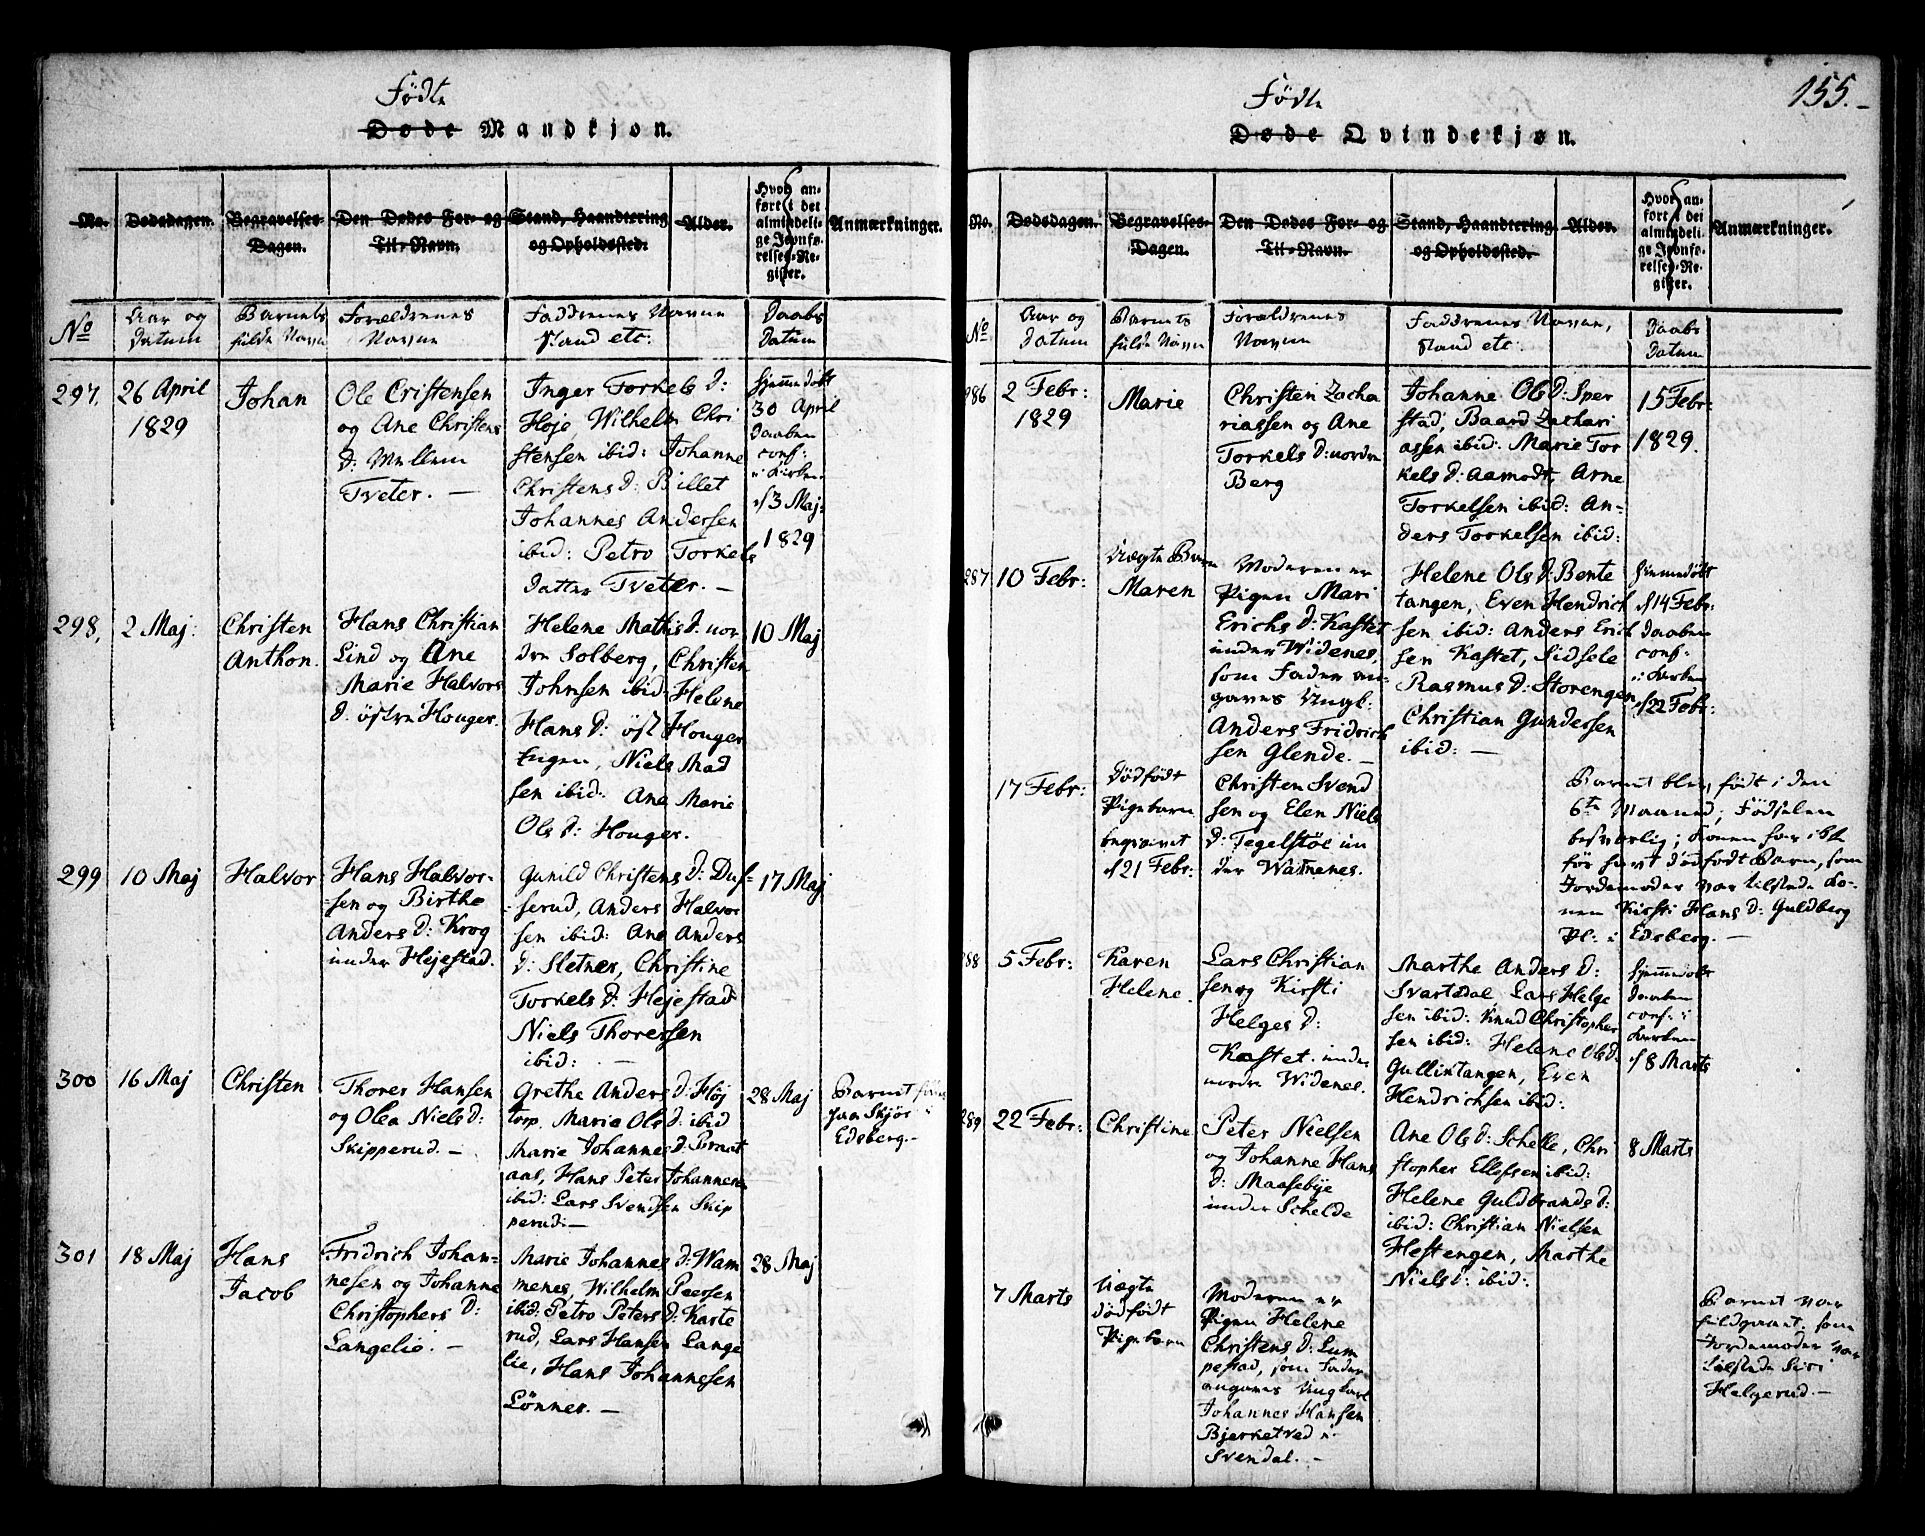 Fødte
Døde Mandkjøn.
No. Dødsdagen. Begravelses-Dagen. Den Dødes For- og Til-Navn. Stand, Haandtering og Opholdssted. Alder. Hvor anført i det almindelige Jevnførelses-Register. Anmærkninger.
No Aar og Datum Barnets fulde Navn Forældrenes Navne Faddrenes Navne Stand etc: Daabs Datum
297. 26 April 1829
Johan
Ole Cristensen
og Ane Christens
D: Mellem
Tveter. —
Inger Torkels D:
Høje, Wilhelm Chri
stensen ibid: Johanne
Christens D: Billet
Johannes Andersen
ibid: Petro Torkels
datter Tveter. —
Hjemmedøbt
30 April
Daaben
conf:
i Kirken
d 3 Maj:
1829
298, 2 Maj:
Christen
Anthon.
Hans Christian
Lind og Ane
Marie Halvors
D. østre Houger.
Helene Mathis D: nor
dre Solberg, Christen
Johnsen ibid: Helene
Hans D: øst Houger
Engen, Niels Mad
sen ibid: Ane Marie
Ols D: Houger. —
10 Maj
299 10 Maj
Halvor
Hans Halvor-
sen og Birthe
Anders D: Krog
under Hejestad.
Gunild Christens D: Duf-
serud, Anders Halvor
sen ibid: Ane Anders
D: Sletner, Christine
Torkels D: Hejestad
Niels Thoresen
ibid: —
17 Maj
300 16 Maj
Christen
Thores Hansen
og Olea Niels D:
Skipperud. —
Grethe Anders D: Høj
torp. Maria Ols D: ibid
Marie Johannes D: Braat
aas, Hans Peter Johannesen
ibid: Lars Svendsen Skip
perud: —
28 Maj
Barnet
fra Skjør i
Edsberg. —
301 18 Maj
Hans
Jacob
Fridrich Johan-
nesen og Johanne
Christophers D:
Langelie. —
Marie Johannes D: Wam
menes, Wilhelm Peersen
ibid: Petro Peters D: Karte
rud, Lars Hansen Lange
lie, Hans Johannesen
Lønner. —
28 Maj
155. —
Fødte
Døde Qvindekjøn.
No. Dødsdagen. Begravelses-Dagen. Den Dødes For- og Til-Navn. Stand, Haandtering og Opholdssted. Alder. Hvor anført i det almindelige Jevnførelses-Register. Anmærkninger.
No Aar og Datum Barnets fulde Navn Forældrenes Navne Faddrenes Navne, Stand etc: Daabs Datum
286 2 Febr: 1829
Marie
Christen Zacha
riassen og Ane
Torkels D: nordre
Berg
Johanne Ols D: Sper
stad, Baard Zachari
assen ibid: Marie Tor
kels D: Aamodt, Arne
Torkelsen ibid: An-
ders Torkelsen ibid:
15 Febr:
1829.
287 10 Febr:
Uægte Barn
Maren
Moderen er
Pigen Mari
Erichs D: Kastet
under Widenes,
som Fader an-
gaves Ungk:
Anders Fridrich
sen Glende. —
Helene Ols D: Bente
tangen, Even Hendrich
sen ibid: Anders Erich
sen Kastet, Sidsele
Rasmus D: Storengen
Christian Gundersen
ibid: —
Hjemmedøbt
d 14 Febr:
Daaben
conf:
i Kirken
d 22 Febr:
17 Febr:
Dødfødt
Pigebarn
begravet
d 21 Febr:
Christen Svend
sen og Elen Niels
D: Tegelstøe un
der Watnenes.
Barnet blev født i den
6te Maaned; Fødselen
besværlig; Konen har ikke
før havt dødfødt Barn, som
Jordemoder var tilstede Ko-
nen Kirsti Hans D: Guldberg
Pl: i Edsberg. —
288 5 Febr:
Karen
Helene.
Lars Christian
sen og Kirsti
Helges D:
Kastet under
nordre Widenes.
Marthe Anders D:
Svartedal Lars Helge
sen ibid: Knud Christopher
sen ibid: Helene Ols D:
Gullixtangen, Even
Hendrichsen ibid:
Hjemmedøbt
Daaben
conf: i
Kirken
d 8 Marts
289 22 Febr:
Christine
Peter Nielsen
og Johanne Hans
D: Maasebye
under Schelde
Ane Ols D: Schelle, Chri
stopher Ellefsen ibid:
Helene Guldbrands D:
ibid: Christian Nielsen
Hestengen, Marthe
Niels D: ibid:
8 Marts
7 Marts
Uægte
dødfødt
Pigebarn
Moderen er
Pigen Helene
Christens D: Lum
pestad, som Fader
angaves Ungkarl
Johannes Hansen
Bjerketved i
Svendal. —
Barnet var
fuldbaaret; som
Jordemoder var
tilstede Siri
Helgerud. —